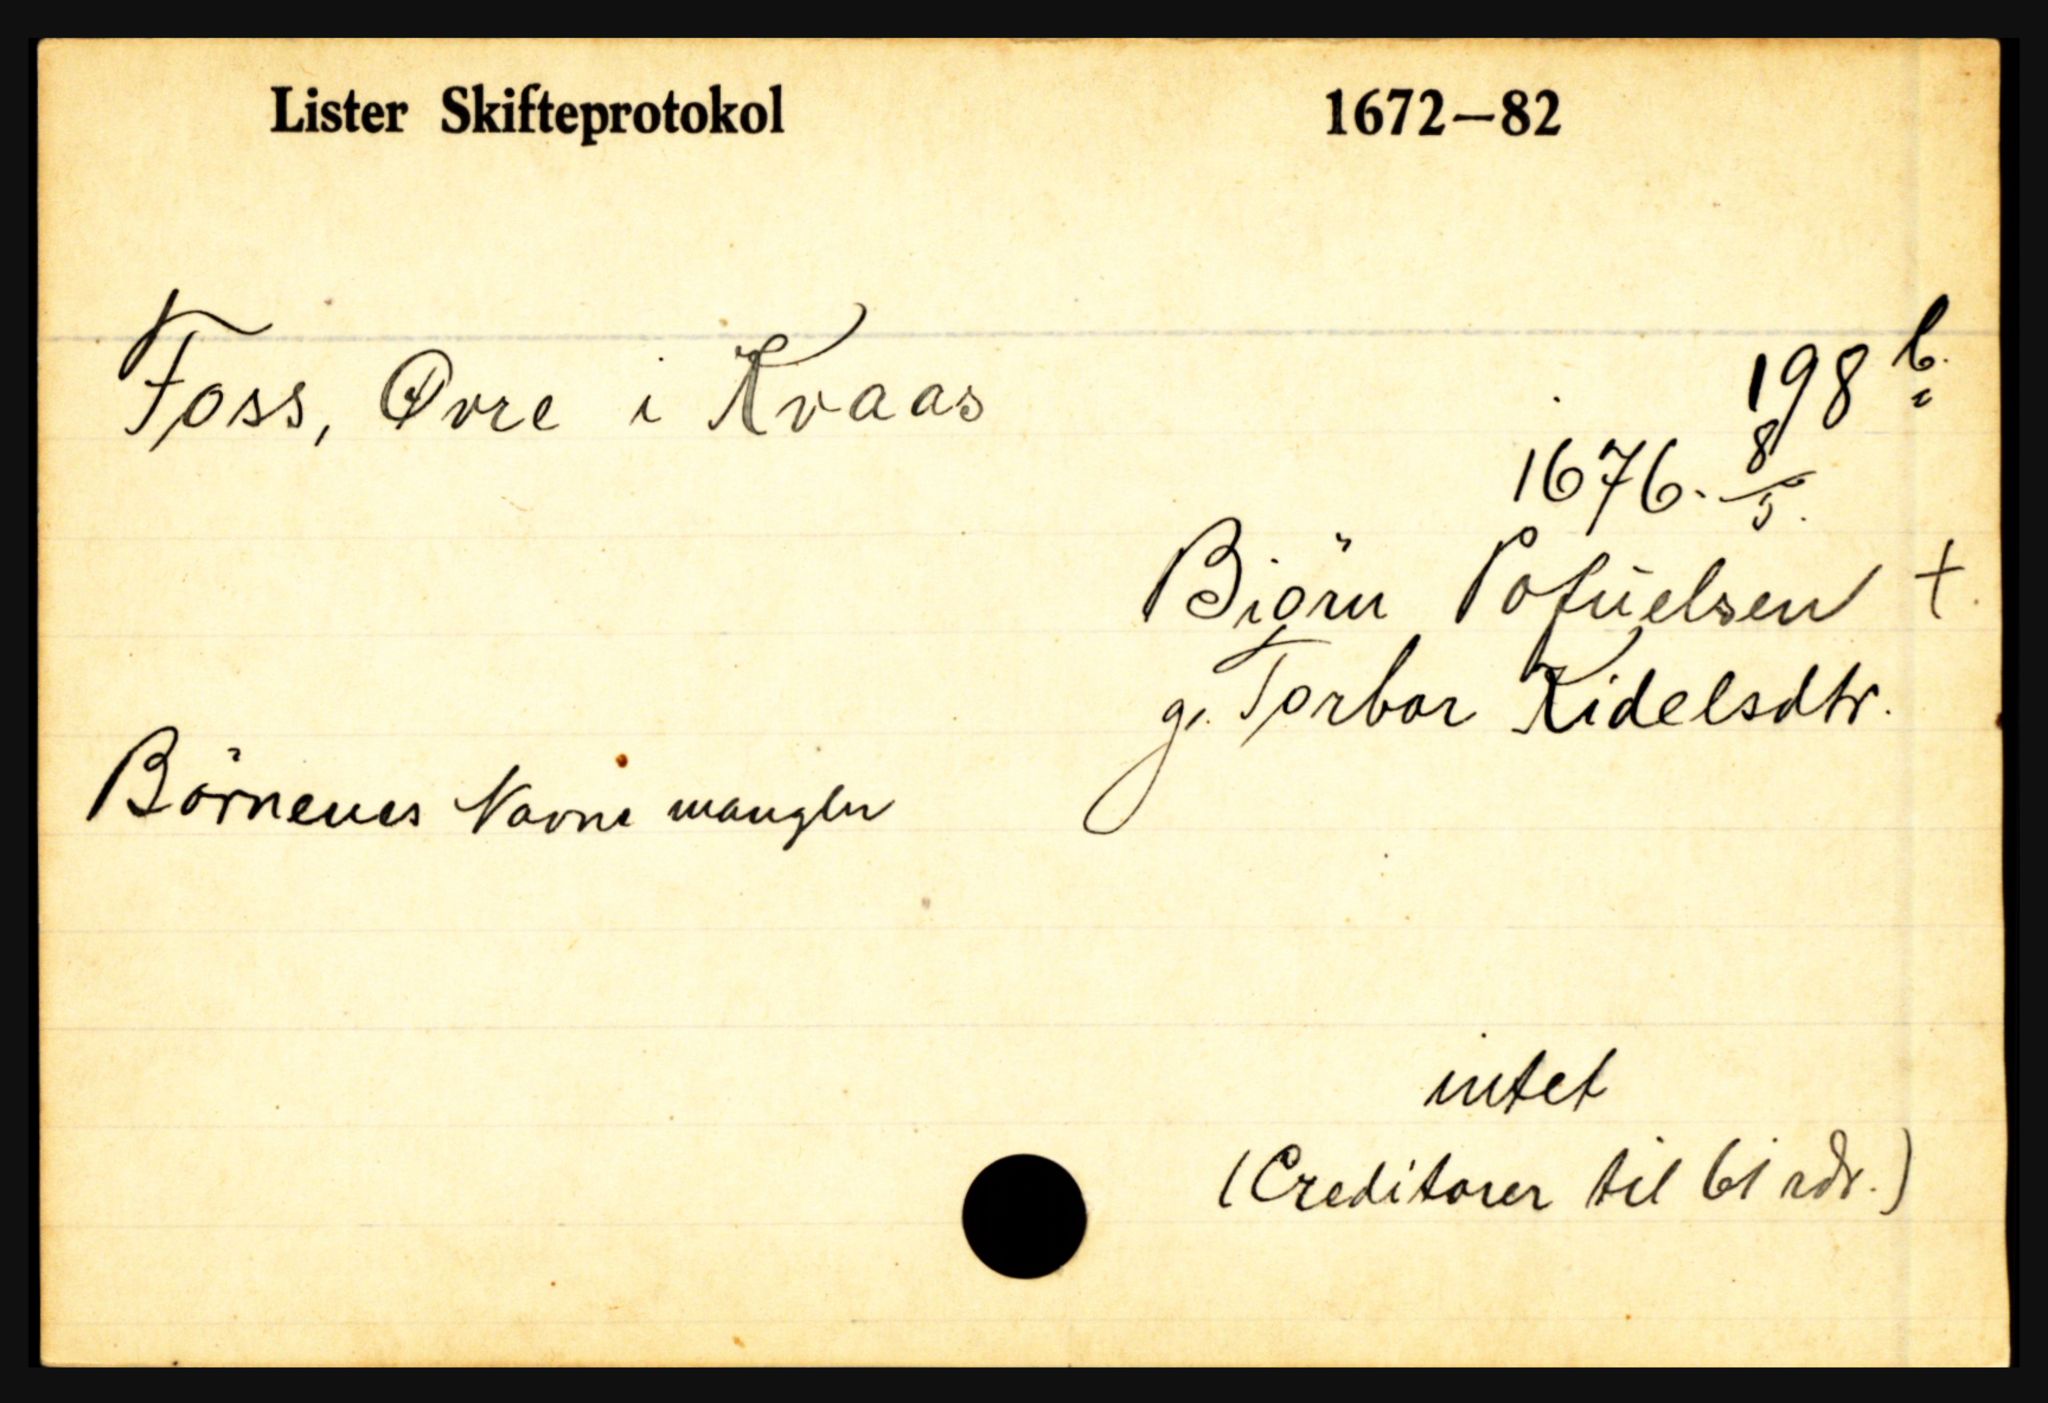 Lister Skifteprotokol 1672–82
Foss, Øvre i Kvaas
198 b.
1676. 8/5.
Biörn Pofuelsen †.
g. Torbor Kidelsdtr.
Börnenes Navne mangler
intet
(Creditorer til 61 rdr.)